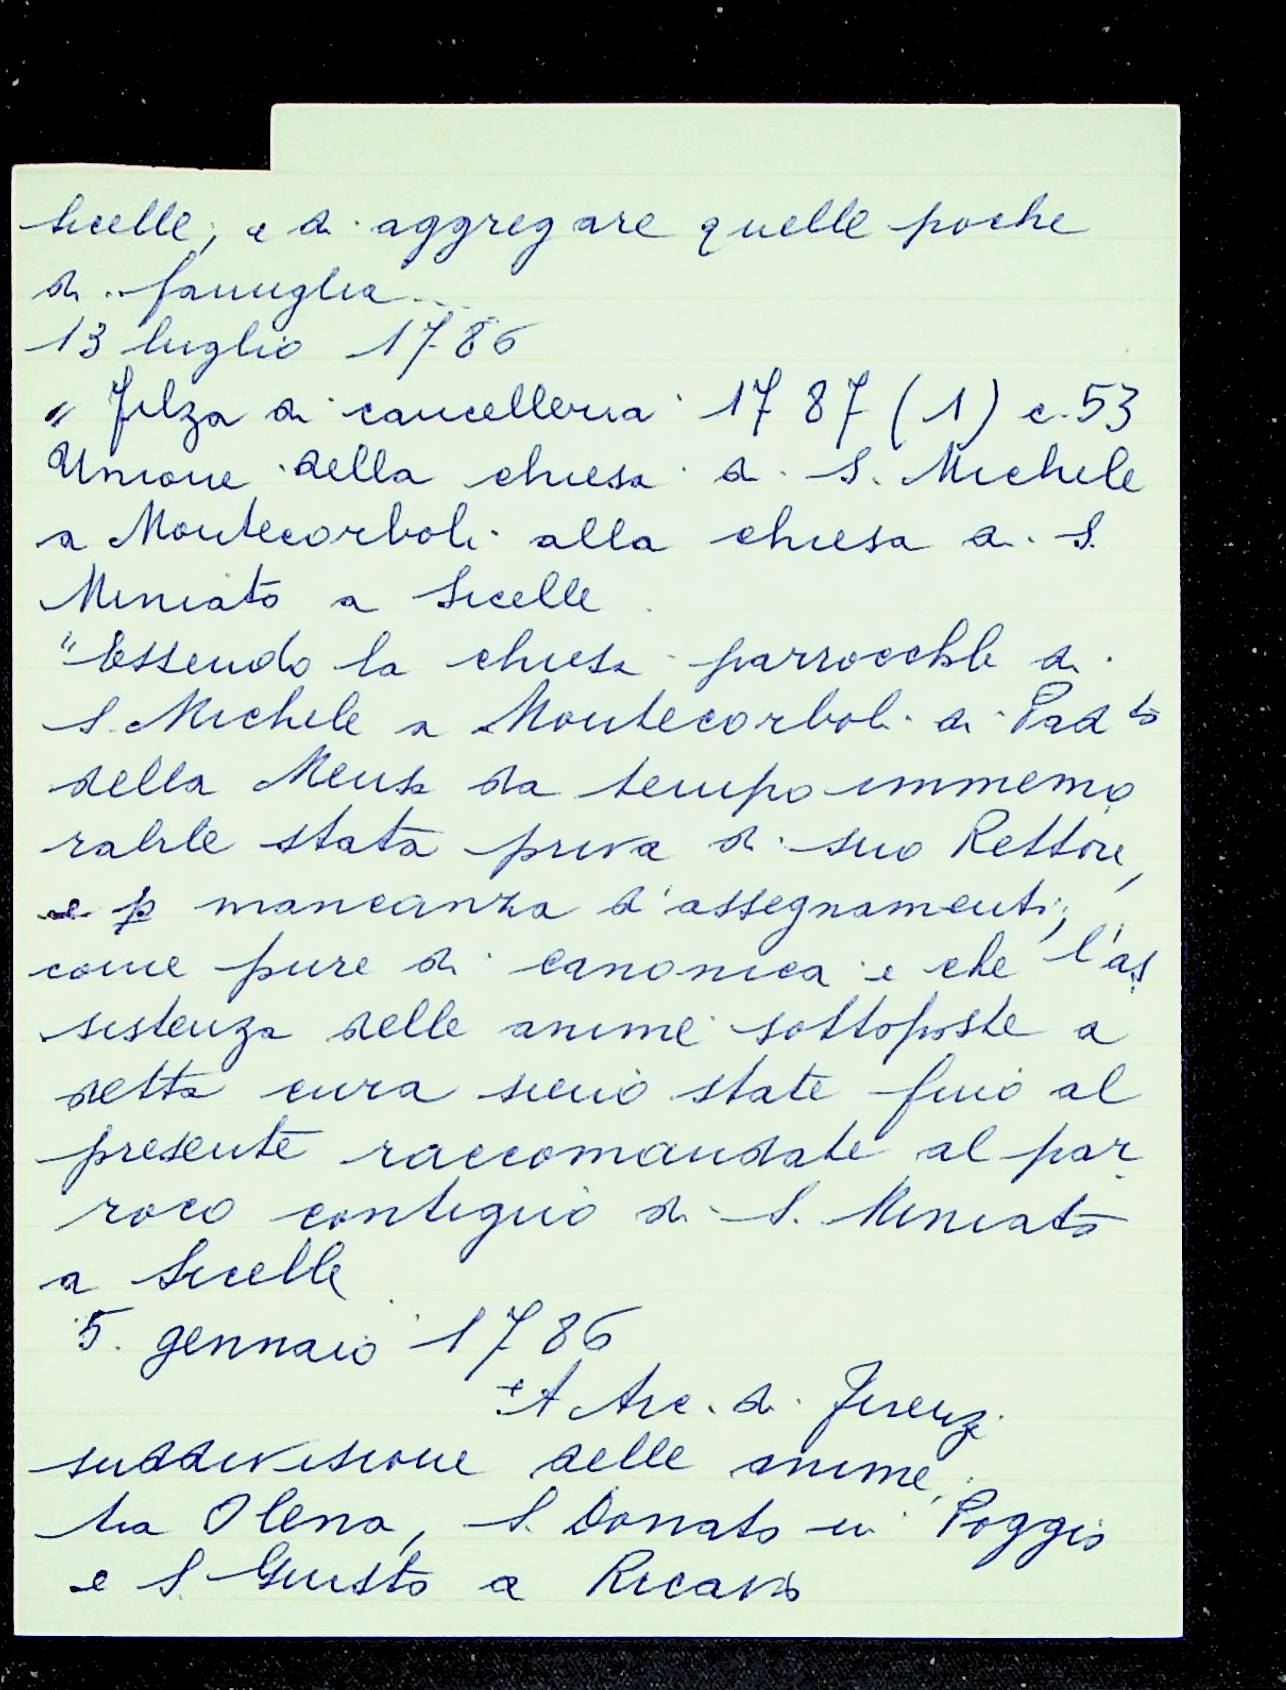 Sicelle, e di aggregare quelle poche
di .. famiglia ...
13 luglio 1786
" Filza di cancelleria 1787 (1) c. 53
Unione della chiesa di S. Michele
a Montecorboli alla chiesa di S.
Miniato a Sicelle
"Essendo la chiesa parrocchle di
S. Michele a Montecorboli di Padto
della Mensa da tempo immemo
rabile stata priva di suo Rettore,
e p mancanza d'assegnamenti,
come pure di canonica e che l'as
sistenza delle anime sottoposte a
detta cura sieno state fino al
presente raccomandate al par
roco contiguo di S. Miniato
a Sicelle
5. gennaio 1786
+A Arc. di Firenze
suddivisione delle anime,
tra Olena, S. Donato in Poggio
e S. Giusto a Ricavo